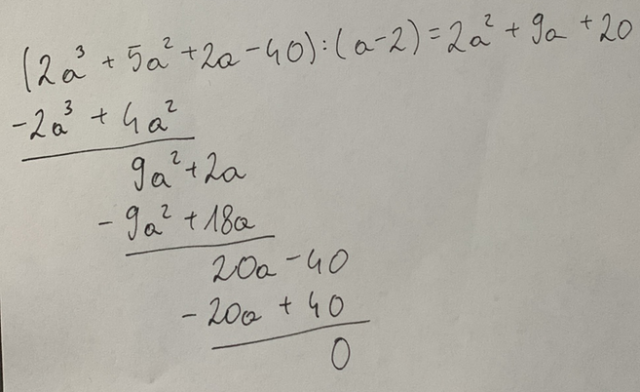 (2a³ + 5a² + 2a - 40) : (a - 2) = 2a² + 9a + 20
-2a³ + 4a²
9a² + 2a
- 9a² + 18a
20a - 40
- 20a + 40
0